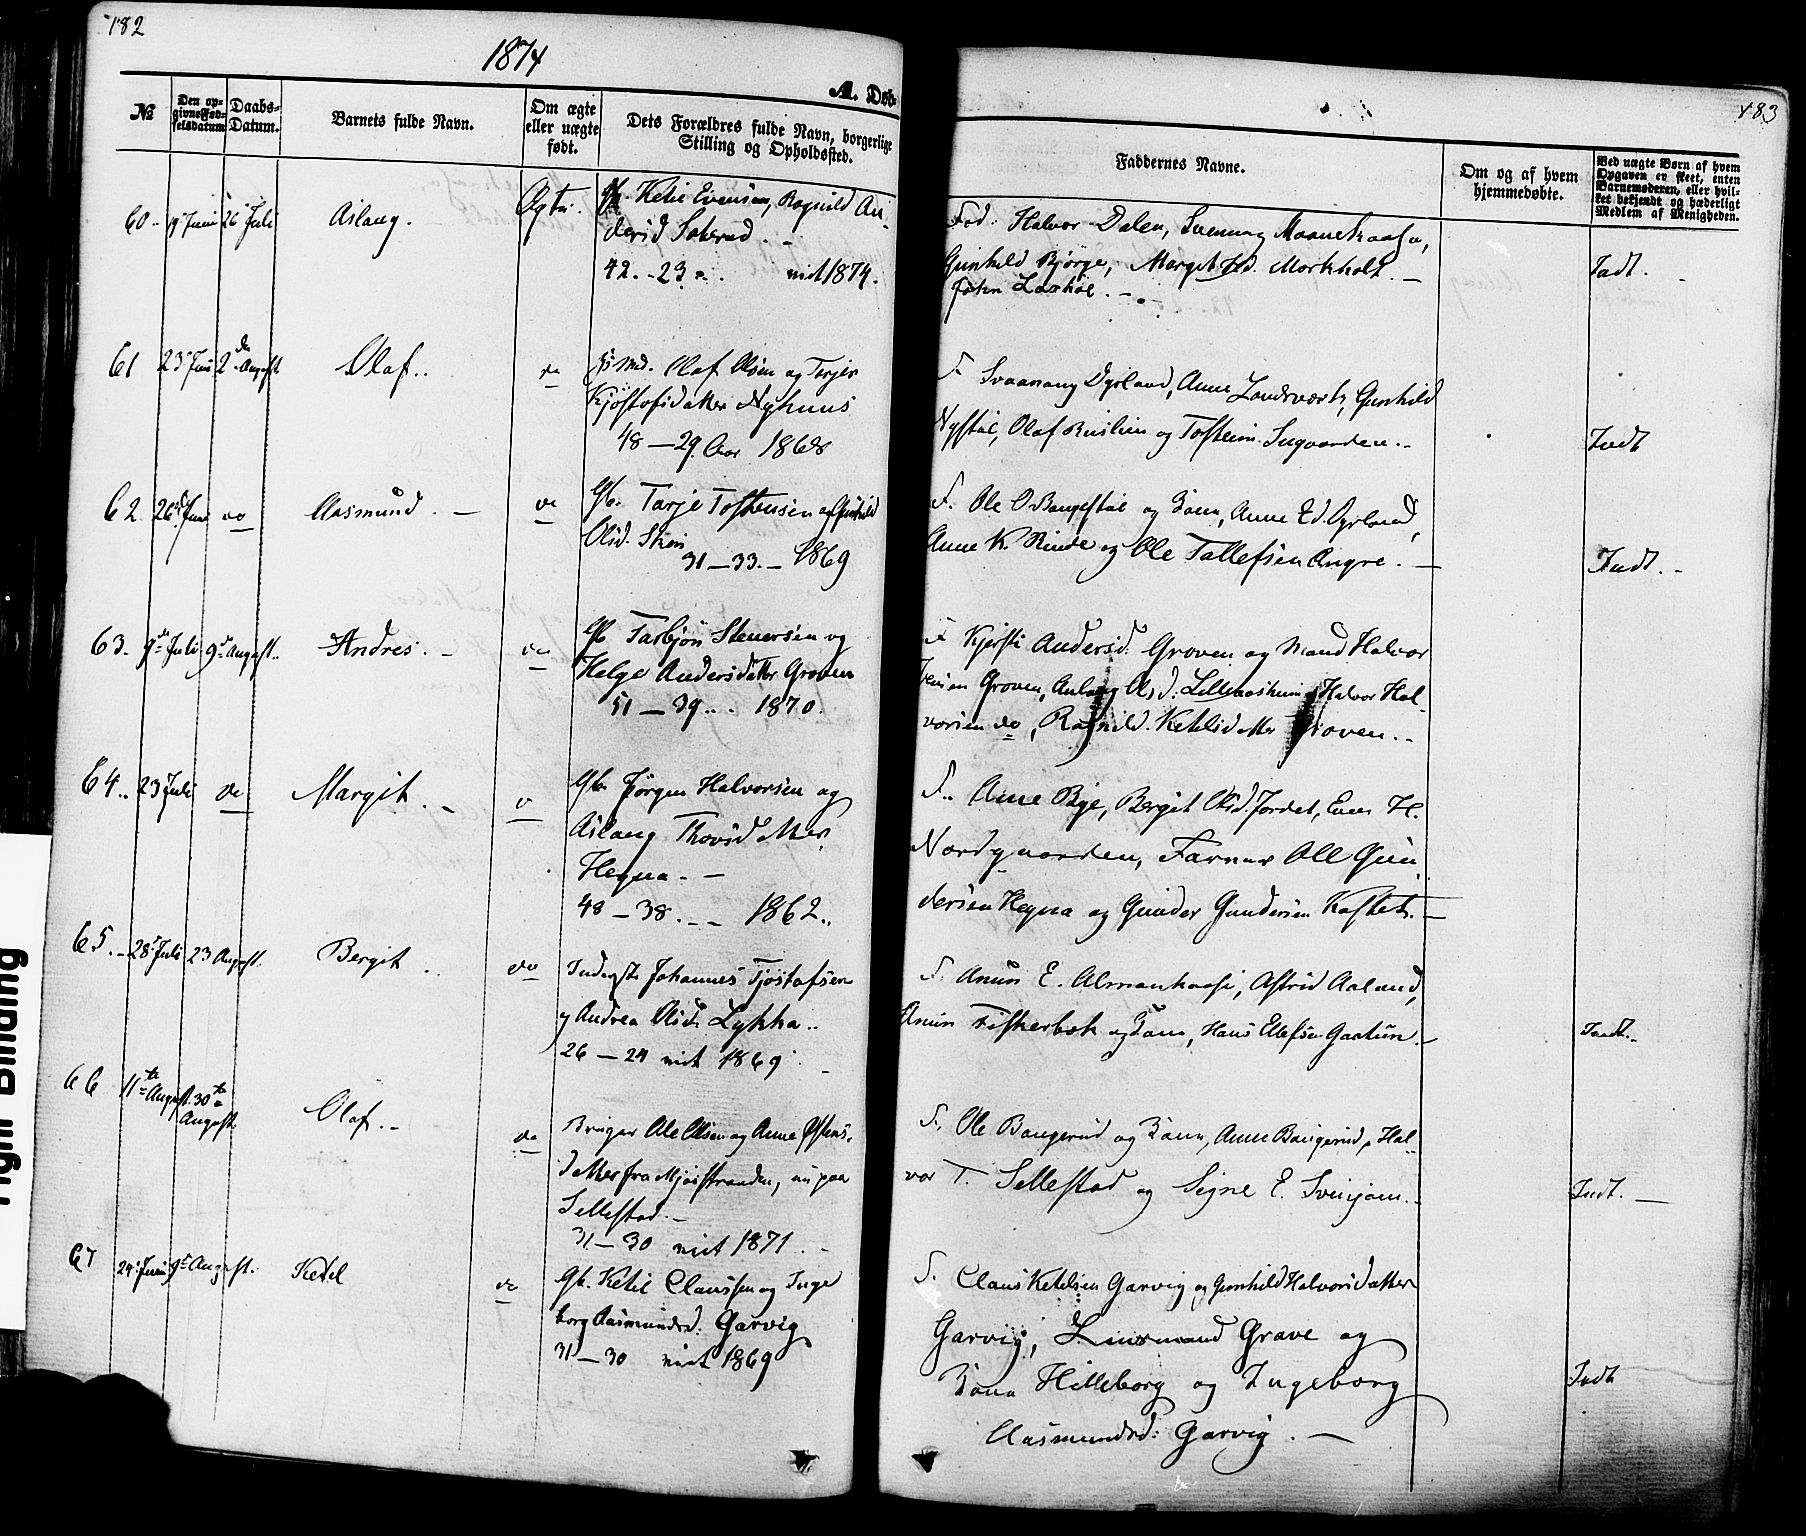 182
1874
A. Døb-
№
Den op-
givne Fød-
selsdatum
Daabs-
Datum.
Barnets fulde Navn.
Om ægte
eller uægte
født.
Dets Forældres fulde Navn, borgerlige
Stilling og Opholdssted.
60.. 9 Juni 26 Juli Aslaug. Ægte. Gb. Ketil Evensen, Ragnild An-
dersd
42.-23 viet 1874.
61 23 Juni 2den August Olaf.. do Olaf Olsen og Terjer
Kjøstofsdatter Nyhuus
48 — 29 Aar 1868
62. 26 Juni do Aasmund. — do Gb. Tarje Tostensen og Gunhild
Olsd. Skeie
31 — 33. — 1869
63. 9de Juli 9de August. Andres. - do Gb Tarbjøn Steversen og
Helge Andersdatter Groven
51 — 39... 1870.
64.. 23 Juli do Margit. - do Gb. Jørgen Halvorsen og
Aslaug Thovsdatter
Hegna. —
48 — 38. — 1862..
65.. 28 Juli 23 August. Bergit.. do Inderst Johannes Tjøstofsen
og Andrea Olsd. Lykka..
26 — 24 viet 1869.
66 11te August 30te
August. Olaf.- do Bruger Ole Olsen og Anne Østens-
datter fra Mjøsstranden, nu paa
Sellestad.-
31 — 30 viet 1871.
67 24 Juni 9de August. Ketil do Gb. Ketil Claussen og Inge
borg Aasmundsd: Garvig
31 — 30 viet 1869
183
Faddernes Navne.
Om og af hvem
hjemmedøbte.
Ved uægte Børn af hvem
Opgaven er skeet, enten
Barnemoderen, eller hvil-
ket bekjendt og hæderligt
Medlem af Menigheden.
Fad: Halvor Dalen, Svenung
Gunhild Bjørge, Margit Morkholt. —
Indt.
F. Dyrland, Anne Landsverk, Gunhild
Nystøl, Olaf og Tostein
Indt
F. Ole O. og Kone, Anne Dyrland,
Anne K. Rinde og Ole Tallefsen Angre. —
Indt. -
F Kjersti Andersd. Groven og Mand Halvor
Groven, Aslaug Olsd. Halvor Hal-
vorsen do, Ragnild Ketilsdatter Groven. -
F.. Anne Bye, Bergit Olsd. Jordet, Even H.
Nordgaarden, Farmor Ole Gun
dersen Hegna og Gunder Gundersen Kastet. —
F. Anun E. Almankaase, Astrid Aaland,
Anun Fiskerbæk og Kone, Hans Ellefsen Gaatun. —
Indt. -
F. Ole Baugerud og Kone, Anne Baugerud, Hal-
vor T. Sellestad og Signe E.
Indt. —
F. Claus Ketilsen Garvig og Gunhild Halvorsdatter
Garvig, Grave og
Kone Hilleborg og Ingeborg
Aasmundsd: Garvig. —
Indt
Right Binding